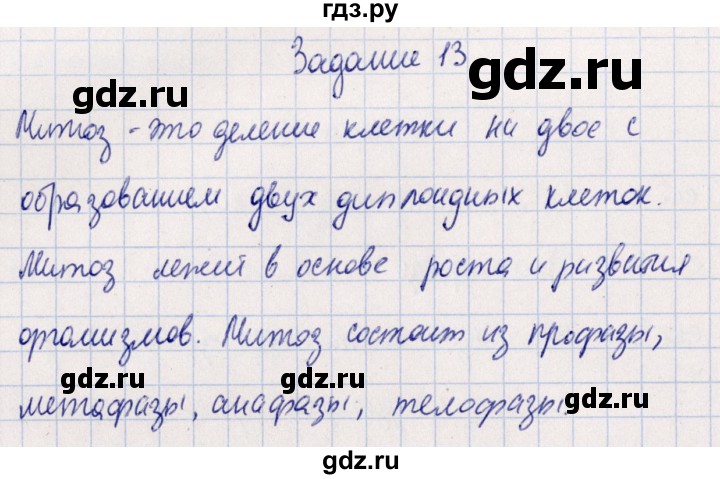 гдз.ру
Задание 13
gdz.ru
gdz.ru
Митоз - это деление клетки на двое с
gdz.ru
образованием двух диплоидных клеток.
Митоз лежит в основе роста и развития
организмов. Митоз состоит из профазы,
gdz.ru
gdz.ru
метафазы, анафазы, телофазы.
gdz.ru